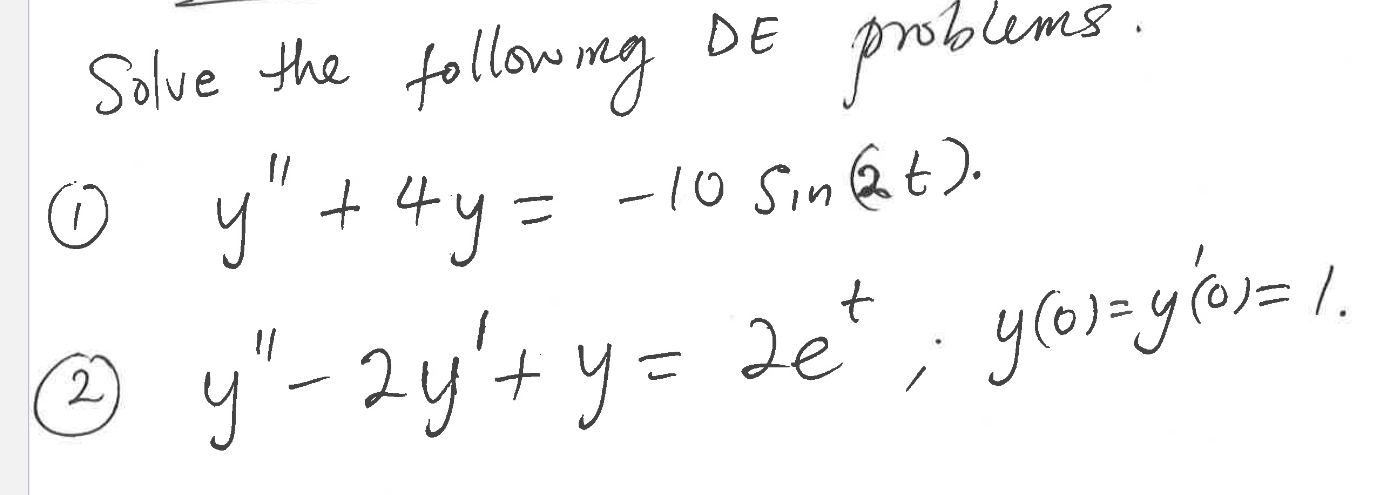 Solve the following DE problems.
① y'' + 4y = -10 Sin(2t).
② y'' - 2y' + y = 2e^t ; y(0) = y'(0) = 1.